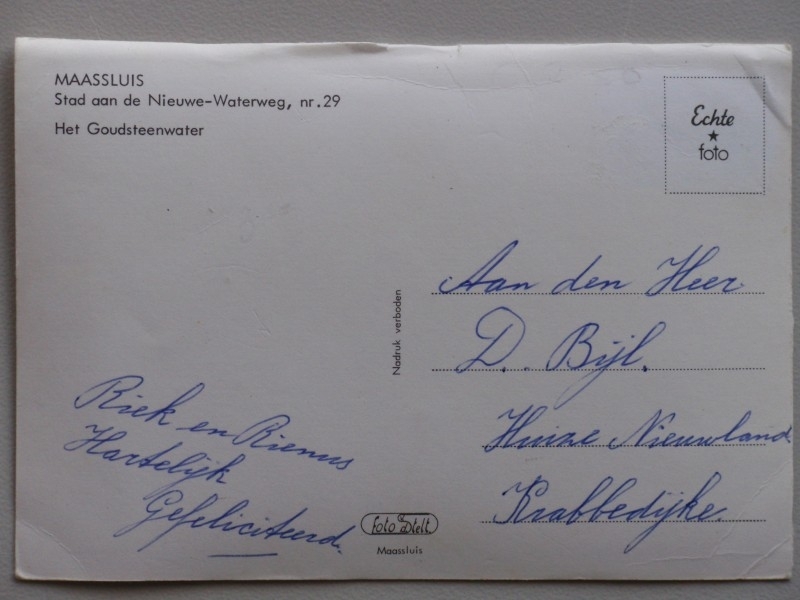 MAASSLUIS
Stad aan de Nieuwe-Waterweg, nr.29
Het Goudsteenwater
Echte
foto
Nadruk verboden
Aan den Heer
D. Bijl.
Huize Nieuwland
Krabbedijke.
Riek en Rienus
Hartelijk
Gefeliciteerd.
foto Stelt
Maassluis